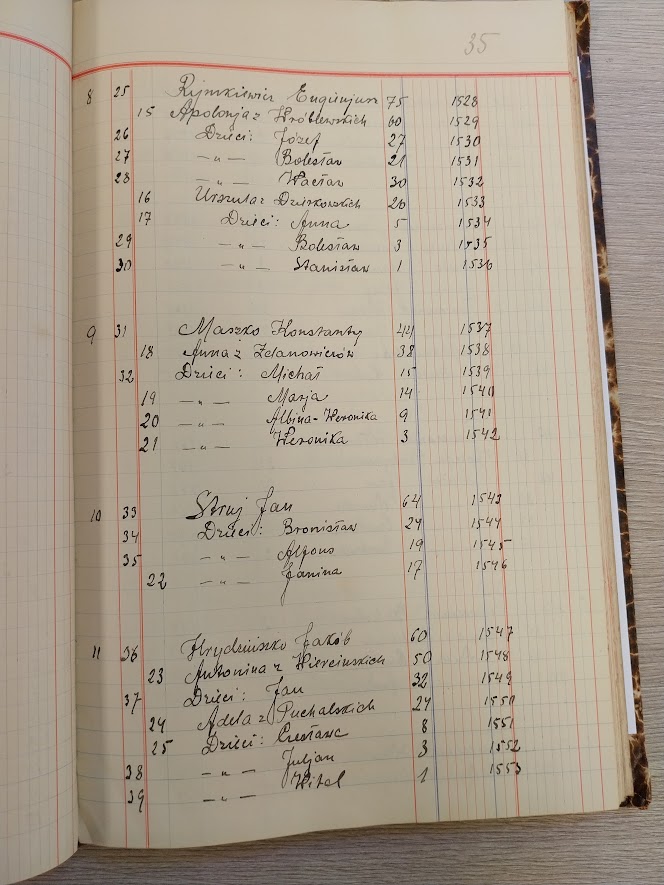 35
8 25 Rymkiewicz Eugenjusz 75 1528
15 Apolonja z Wróblewskich 60 1529
26 Dzieci: Józef 27 1530
27 —„— Bolesław 21 1531
28 —„— Wacław 30 1532
16 Urszula z Dzirkowskich 26 1533
17 Dzieci: Anna 5 1534
29 —„— Bolesław 3 1535
30 —„— Stanisław 1 1536
9 31 Maszko Konstanty 44 1537
18 Anna z Zdanowiczów 38 1538
32 Dzieci: Michał 15 1539
19 —„— Marja 14 1540
20 —„— Albina-Weronika 9 1541
21 —„— Weronika 3 1542
10 33 Struj Jan 64 1543
34 Dzieci: Bronisław 24 1544
35 —„— Alfons 19 1545
22 —„— Janina 17 1546
11 36 Hrydziuszko Jakób 60 1547
23 Antonina z Wierciuskich 50 1548
37 Dzieci: Jan 32 1549
24 Adela z Puchalskich 24 1550
25 Dzieci: Czesława 8 1551
38 —„— Juljan 3 1552
39 —„— Witel 1 1553